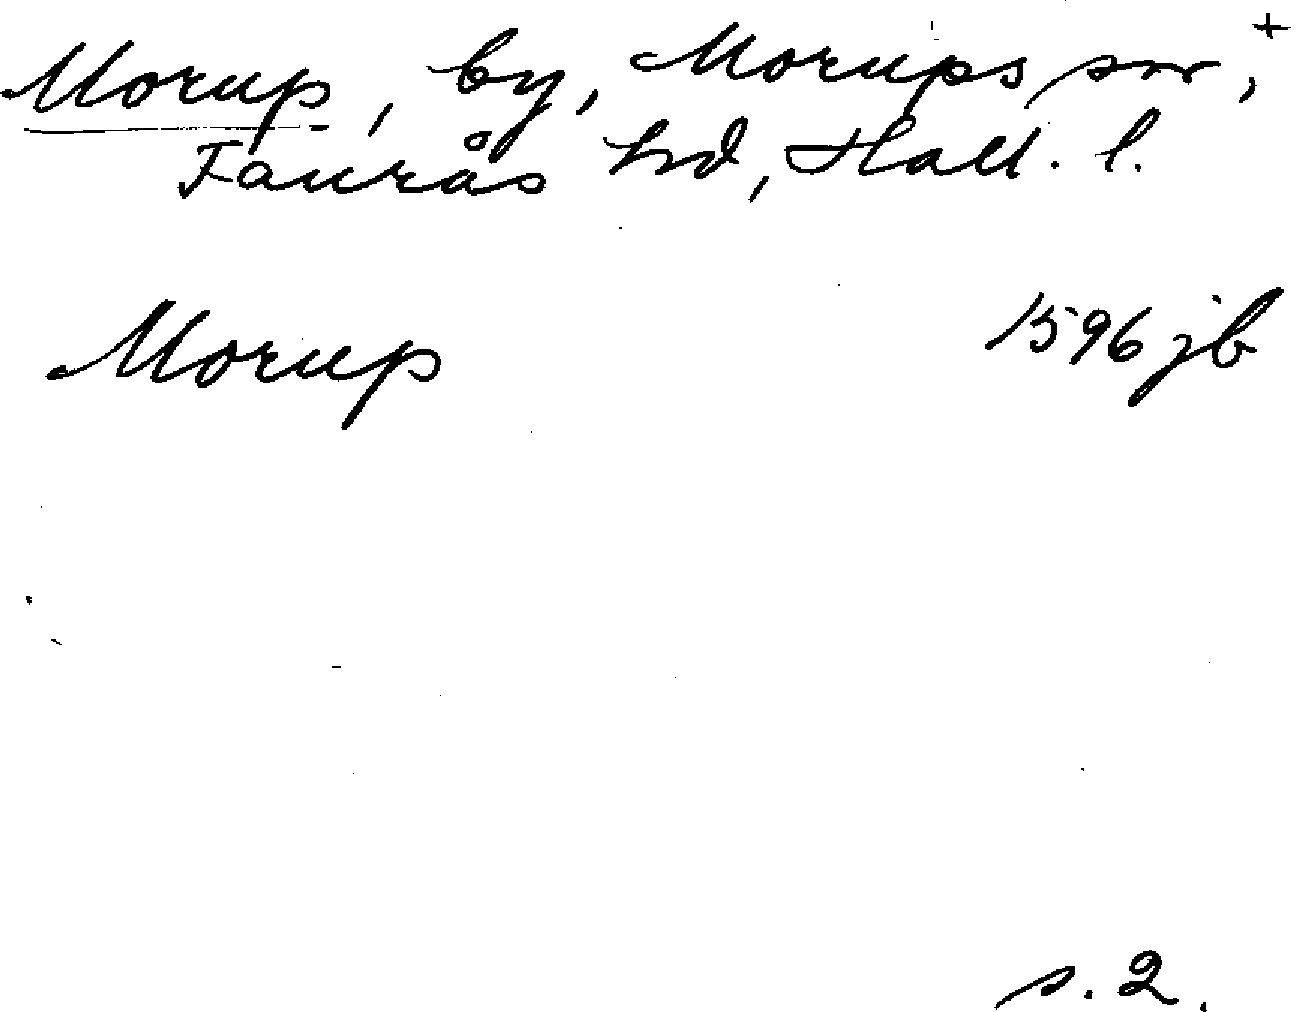 Morup, by, Morups sn, +
Faurås hd, Hall. l.
Morup 1596 jb
s. 2.